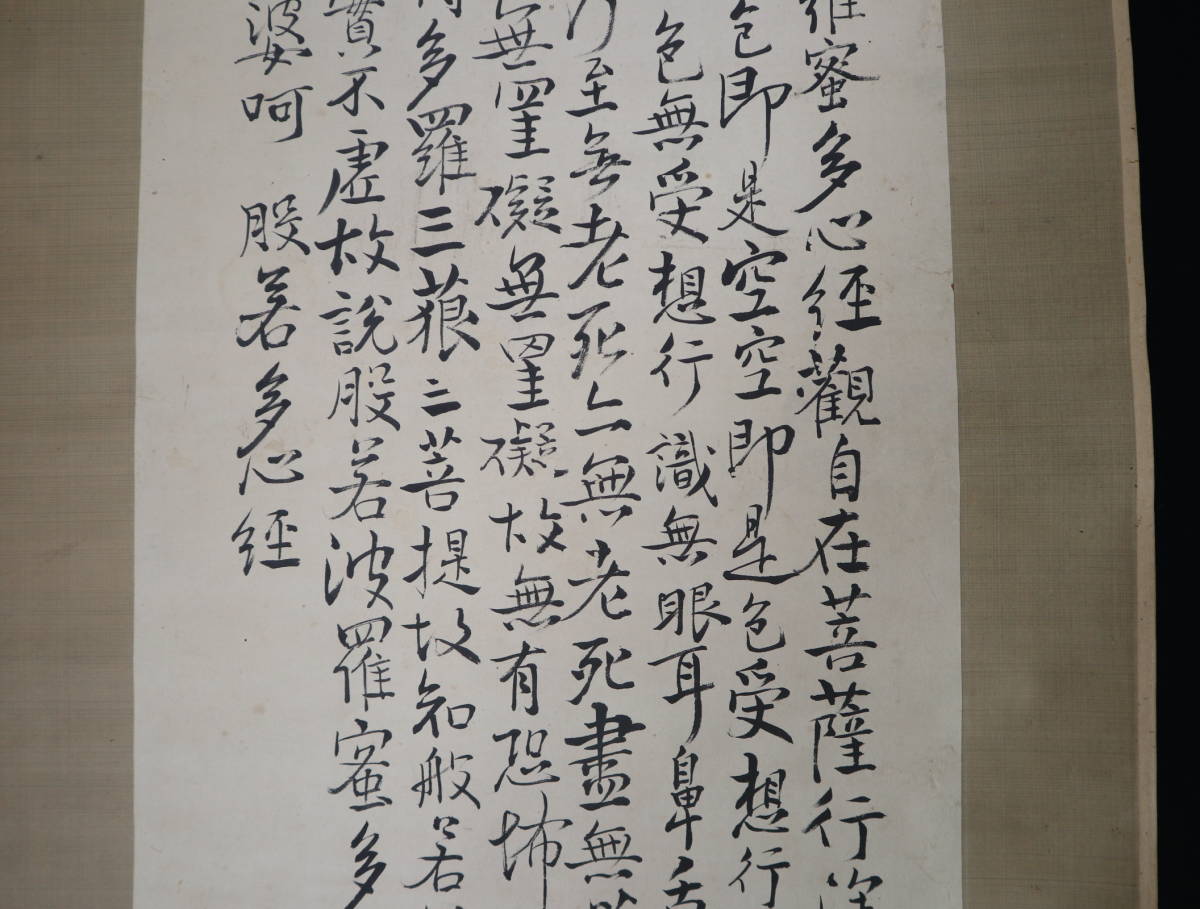 蜜多心經觀自在菩薩行深
色即是空空即是色受想行
色無受想行識無眼耳鼻舌
乃至無老死亦無老死盡無
無罣礙無罣礙故無有恐怖
多羅三藐三菩提故知般若
實不虛故說般若波羅蜜多
婆呵 般若多心經